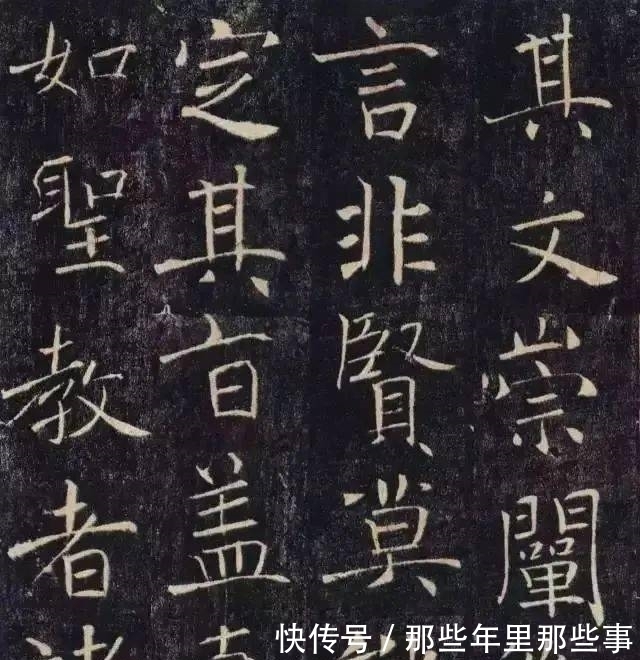 其文崇闡
言非賢莫
定其旨盖
如聖教者諸
快传号 / 那些年里那些事